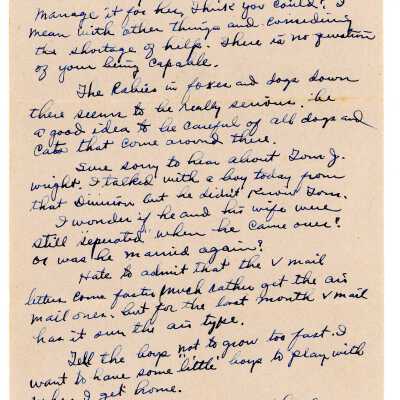 manage it for her, think you could? I
mean with other things and considering
the shortage of help. There is no question
of your being capable.
The Rabies in foxes and dogs down
there seems to be really serious. be
a good idea to be careful of all dogs and
cats that come around there.
Sure sorry to hear about Tom J.
wright. I talked with a boy today from
that Division but he didn't know Tom.
I wonder if he and his wife were
still "seperated" when he came over?
or was he married again?
Hate to admit that the V mail
letters come faster, much rather get the air
mail ones. but for the last month V mail
has it over the air type.
Tell the boys not to grow too fast. I
want to have some "little" boys to play with
when I get home.